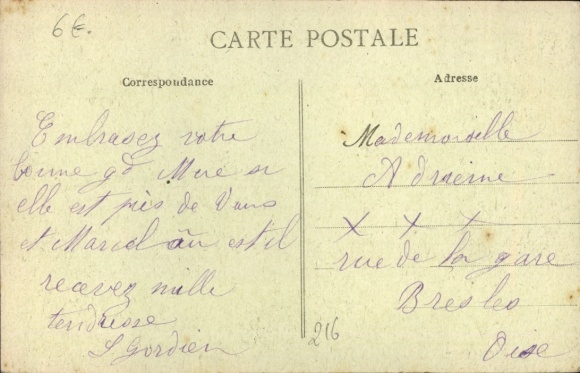 6€.
CARTE POSTALE
Correspondance
Adresse
Embrasez votre
bonne gd Mere si
elle est près de Vous
et Marcel est il
recevez mille
tendresse
S Gordien
216
Mademoiselle
Adrienne
X X X
rue de la gare
Bresles
Oise